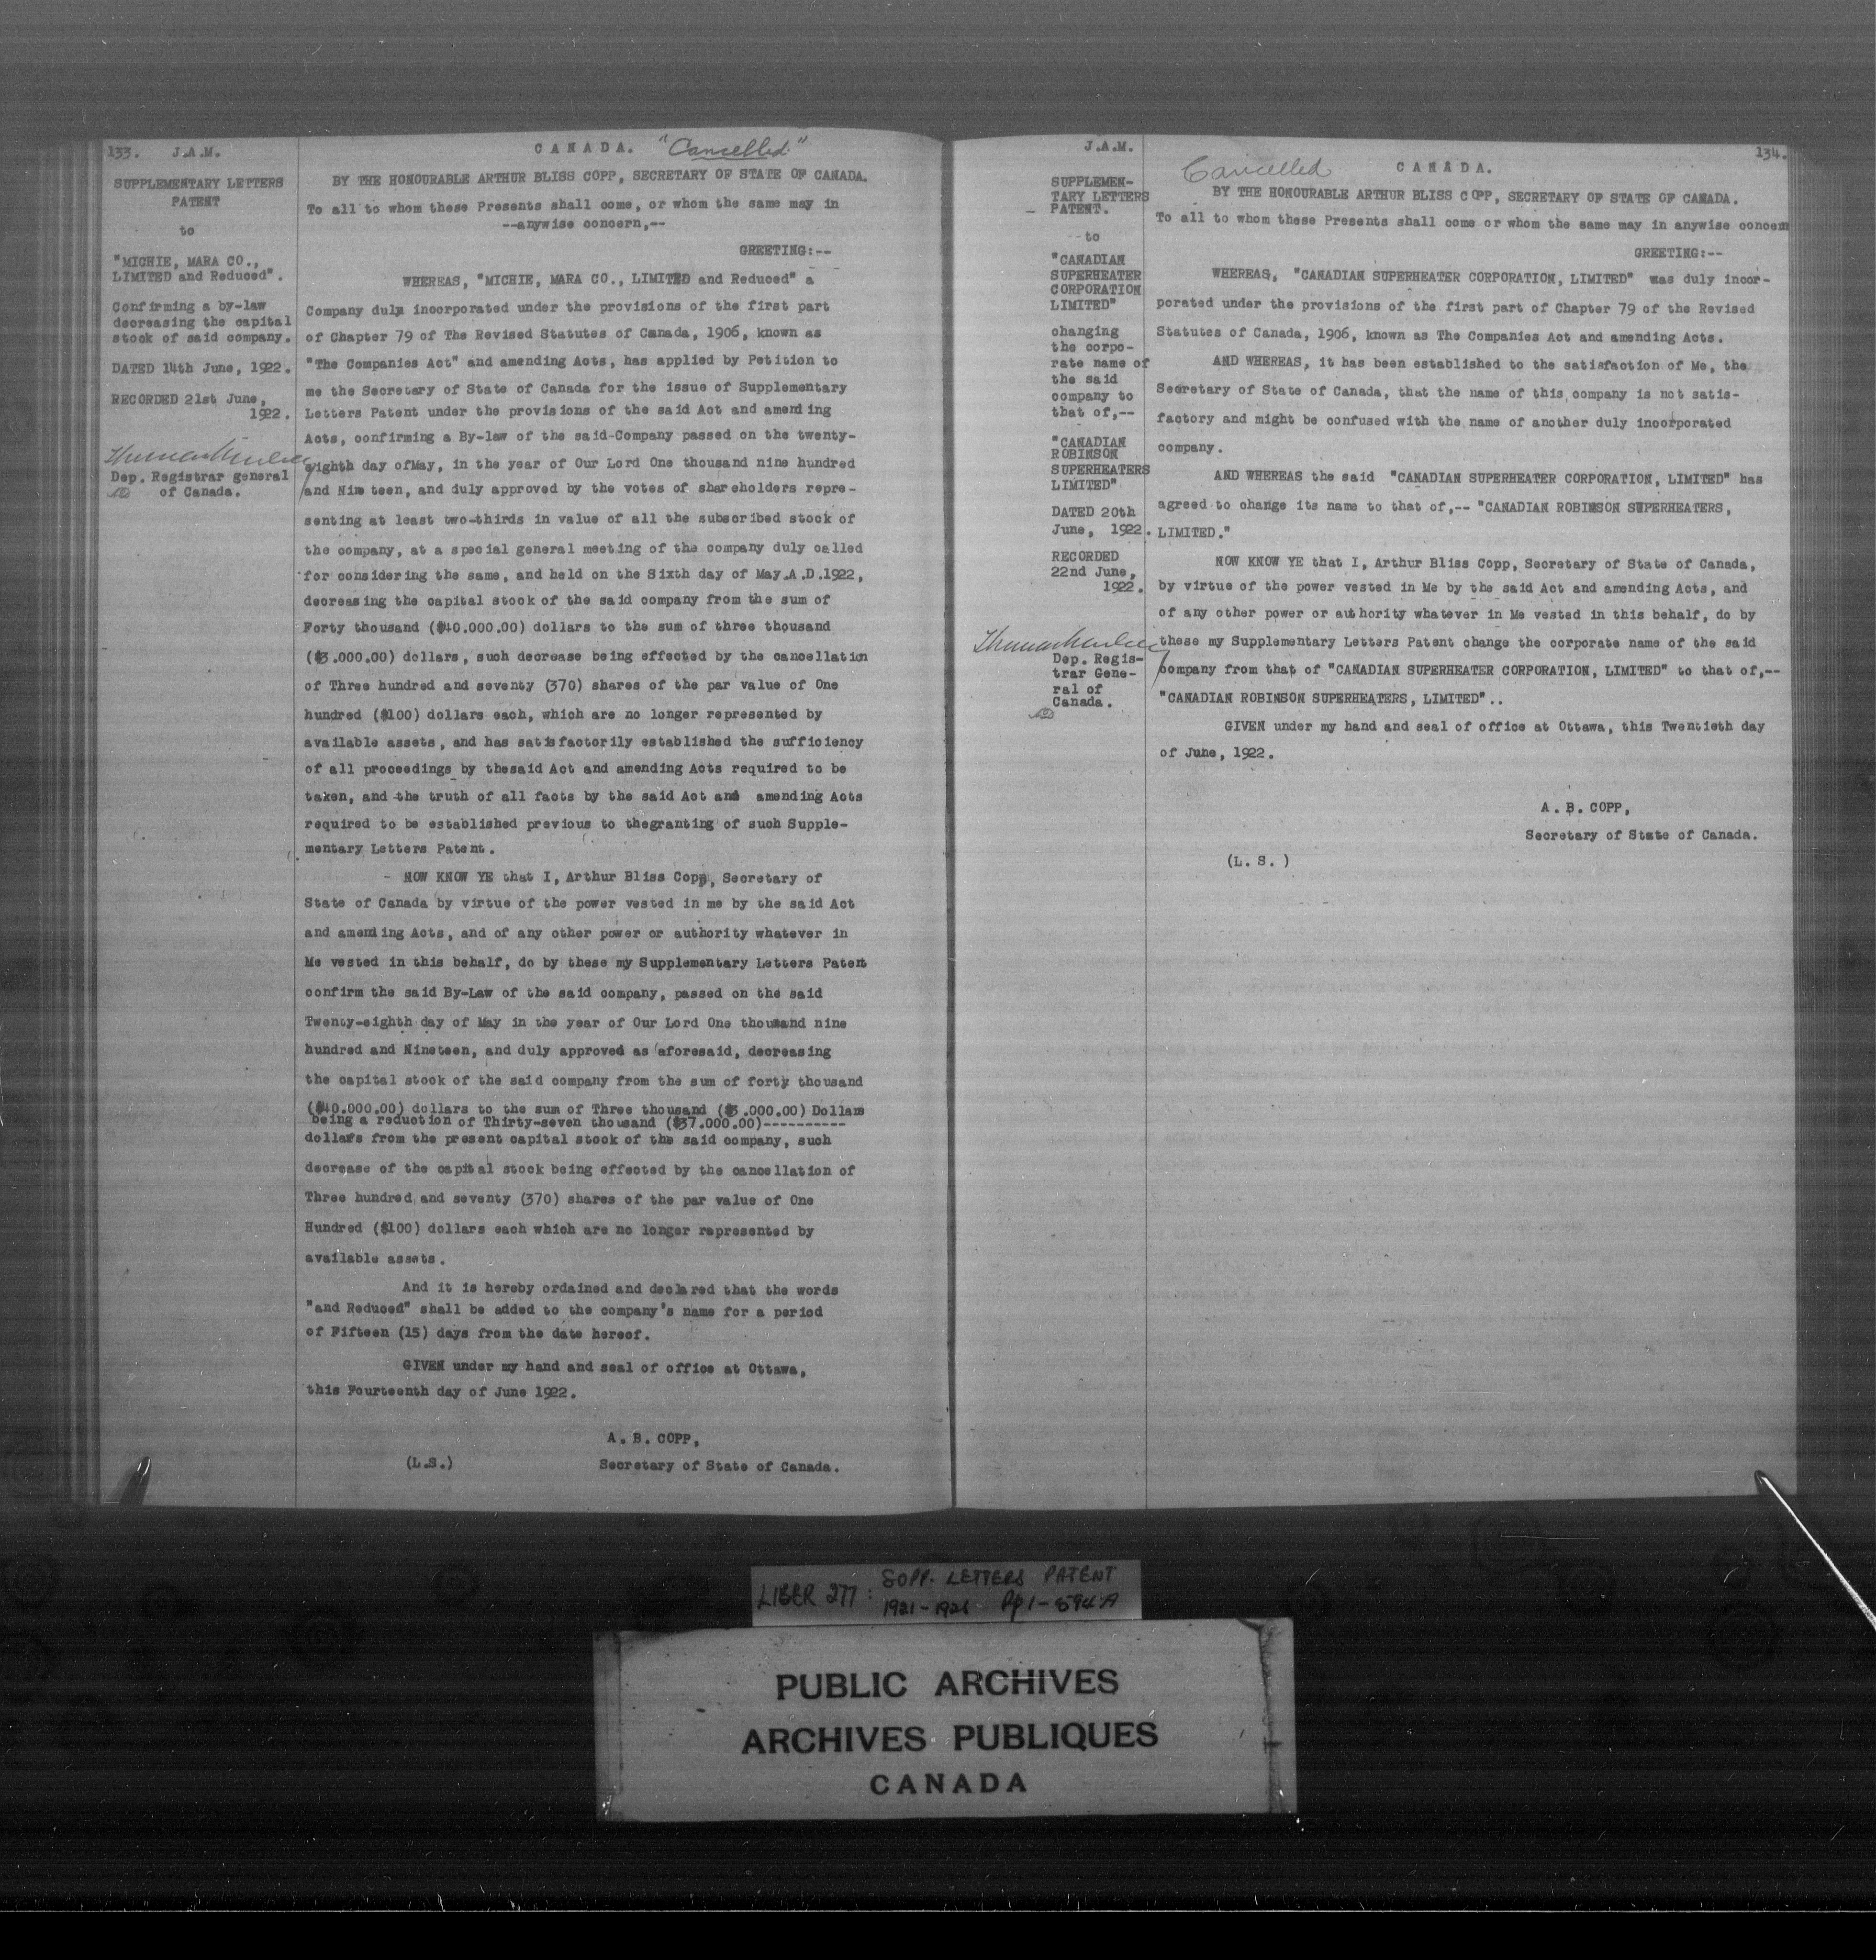 133. J.A.M.
SUPPLEMENTARY LETTERS
PATENT
to
"MICHIE, MARA CO.,
LIMITED and Reduced".
Confirming a by-law
decreasing the capital
stock of said company.
DATED 14th June, 1922.
RECORDED 21st June,
1922.
Dep. Registrar general
of Canada.
CANADA. "Cancelled"
BY THE HONOURABLE ARTHUR BLISS COPP, SECRETARY OF STATE OF CANADA.
To all to whom these Presents shall come, or whom the same may in
--anywise concern,--
GREETING:--
WHEREAS, "MICHIE, MARA CO., LIMITED and Reduced" a
Company duly incorporated under the provisions of the first part
of Chapter 79 of The Revised Statutes of Canada, 1906, known as
"The Companies Act" and amending Acts, has applied by Petition to
me the Secretary of State of Canada for the issue of Supplementary
Letters Patent under the provisions of the said Act and amending
Acts, confirming a By-law of the said-Company passed on the twenty-
eighth day ofMay, in the year of Our Lord One thousand nine hundred
and Nineteen, and duly approved by the votes of shareholders repre-
senting at least two-thirds in value of all the subscribed stock of
the company, at a special general meeting of the company duly called
for considering the same, and held on the Sixth day of May.A.D.1922,
decreasing the capital stock of the said company from the sum of
Forty thousand ($40.000.00) dollars to the sum of three thousand
($3.000.00) dollars, such decrease being effected by the cancellation
of Three hundred and seventy (370) shares of the par value of One
hundred ($100) dollars each, which are no longer represented by
available assets, and has satisfactorily established the sufficiency
of all proceedings by thesaid Act and amending Acts required to be
taken, and the truth of all facts by the said Act and amending Acts
required to be established previous to thegranting of such Supple-
mentary Letters Patent.
- NOW KNOW YE that I, Arthur Bliss Copp, Secretary of
State of Canada by virtue of the power vested in me by the said Act
and amending Acts, and of any other power or authority whatever in
Me vested in this behalf, do by these my Supplementary Letters Patent
confirm the said By-Law of the said company, passed on the said
Twenty-eighth day of May in the year of Our Lord One thousand nine
hundred and Nineteen, and duly approved as aforesaid, decreasing
the capital stock of the said company from the sum of forty thousand
($40.000.00) dollars to the sum of Three thousand ($3.000.00) Dollars
being a reduction of Thirty-seven thousand ($37.000.00)----------
dollars from the present capital stock of the said company, such
decrease of the capital stock being effected by the cancellation of
Three hundred and seventy (370) shares of the par value of One
Hundred ($100) dollars each which are no longer represented by
available assets.
And it is hereby ordained and declared that the words
"and Reduced" shall be added to the company's name for a period
of Fifteen (15) days from the date hereof.
GIVEN under my hand and seal of office at Ottawa,
this Fourteenth day of June 1922.
A. B. COPP,
(L.S.) Secretary of State of Canada.
J.A.M.
SUPPLEMEN-
TARY LETTERS
PATENT.
to
"CANADIAN
SUPERHEATER
CORPORATION
LIMITED"
changing
the corpo-
rate name of
the said
company to
that of,--
"CANADIAN
ROBINSON
SUPERHEATERS
LIMITED"
DATED 20th
June, 1922.
RECORDED
22nd June,
1922.
Dep. Regis-
trar Gene-
ral of
Canada.
134.
Cancelled CANADA.
BY THE HONOURABLE ARTHUR BLISS COPP, SECRETARY OF STATE OF CANADA.
To all to whom these Presents shall come or whom the same may in anywise concern
GREETING:--
WHEREAS, "CANADIAN SUPERHEATER CORPORATION, LIMITED" was duly incor-
porated under the provisions of the first part of Chapter 79 of the Revised
Statutes of Canada, 1906, known as The Companies Act and amending Acts.
AND WHEREAS, it has been established to the satisfaction of Me, the
Secretary of State of Canada, that the name of this company is not satis-
factory and might be confused with the name of another duly incorporated
company.
AND WHEREAS the said "CANADIAN SUPERHEATER CORPORATION, LIMITED" has
agreed to change its name to that of,-- "CANADIAN ROBINSON SUPERHEATERS,
LIMITED."
NOW KNOW YE that I, Arthur Bliss Copp, Secretary of State of Canada,
by virtue of the power vested in Me by the said Act and amending Acts, and
of any other power or authority whatever in Me vested in this behalf, do by
these my Supplementary Letters Patent change the corporate name of the said
Company from that of "CANADIAN SUPERHEATER CORPORATION, LIMITED" to that of,--
"CANADIAN ROBINSON SUPERHEATERS, LIMITED"..
GIVEN under my hand and seal of office at Ottawa, this Twentieth day
of June, 1922.
A. B. COPP,
Secretary of State of Canada.
(L. S. )
LIBER 277: SUPP. LETTERS PATENT
1921-1926 Pp 1-594A
PUBLIC ARCHIVES
ARCHIVES PUBLIQUES
CANADA